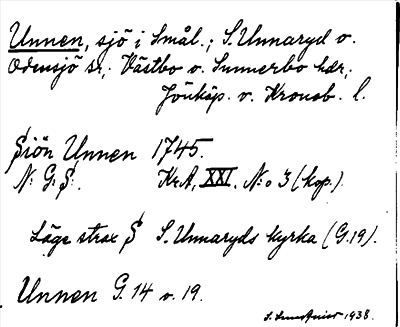 Unnen, sjö i Smål.; S. Unnaryd o.
Odensjö sr, Västbo o. Sunnerbo hdr,
Jönköp. o. Kronob. l.
Sjön Unnen 1745.
N: G: S: Kr.A, XXI. N:o 3 (kop.).
Läge strax S S. Unnaryds kyrka (G.19).
Unnen G. 14 o. 19.
1938.